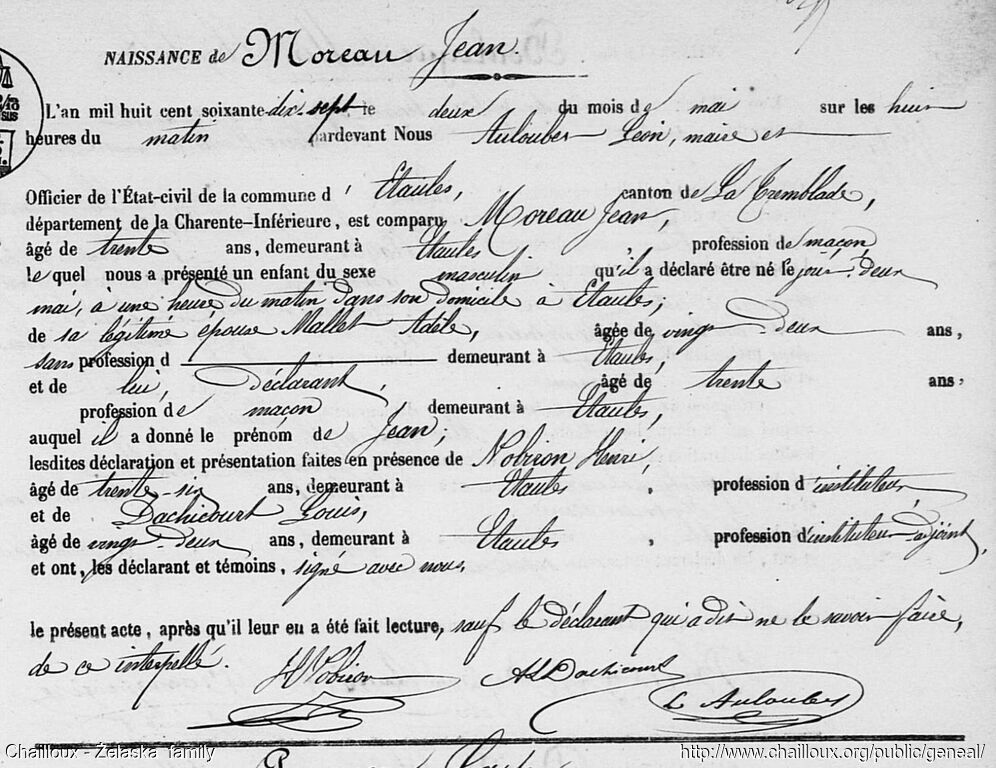 NAISSANCE de Moreau Jean.
L'an mil huit cent soixante-dix-sept le deux du mois de mai sur les huit
heures du matin pardevant Nous Auloubes Léon, maire et
Officier de l'État-civil de la commune d'Etaules, canton de La Tremblade,
département de la Charente-Inférieure, est comparu Moreau Jean,
âgé de trente ans, demeurant à Etaules profession de maçon
lequel nous a présenté un enfant du sexe masculin qu'il a déclaré être né le jour deux
mai, à une heure du matin dans son domicile à Etaules;
de sa légitime épouse Mallet Adèle, âgée de vingt-deux ans,
sans profession d demeurant à Etaules,
et de lui, déclarant, âgé de trente ans,
profession de maçon demeurant à Etaules,
auquel il a donné le prénom de Jean;
lesdites déclaration et présentation faites en présence de Nobiron Henri,
âgé de trente-six ans, demeurant à Etaules, profession d'instituteur,
et de Dachicourt Louis,
âgé de vingt-deux ans, demeurant à Etaules, profession d'instituteur-adjoint,
et ont, les déclarant et témoins, signé avec nous,
le présent acte, après qu'il leur en a été fait lecture, sauf le déclarant qui a dit ne le savoir faire,
de ce interpellé.
HNobiron ALDachicourt L Auloubes
Chailloux - Żelaska family http://www.chailloux.org/public/geneal/